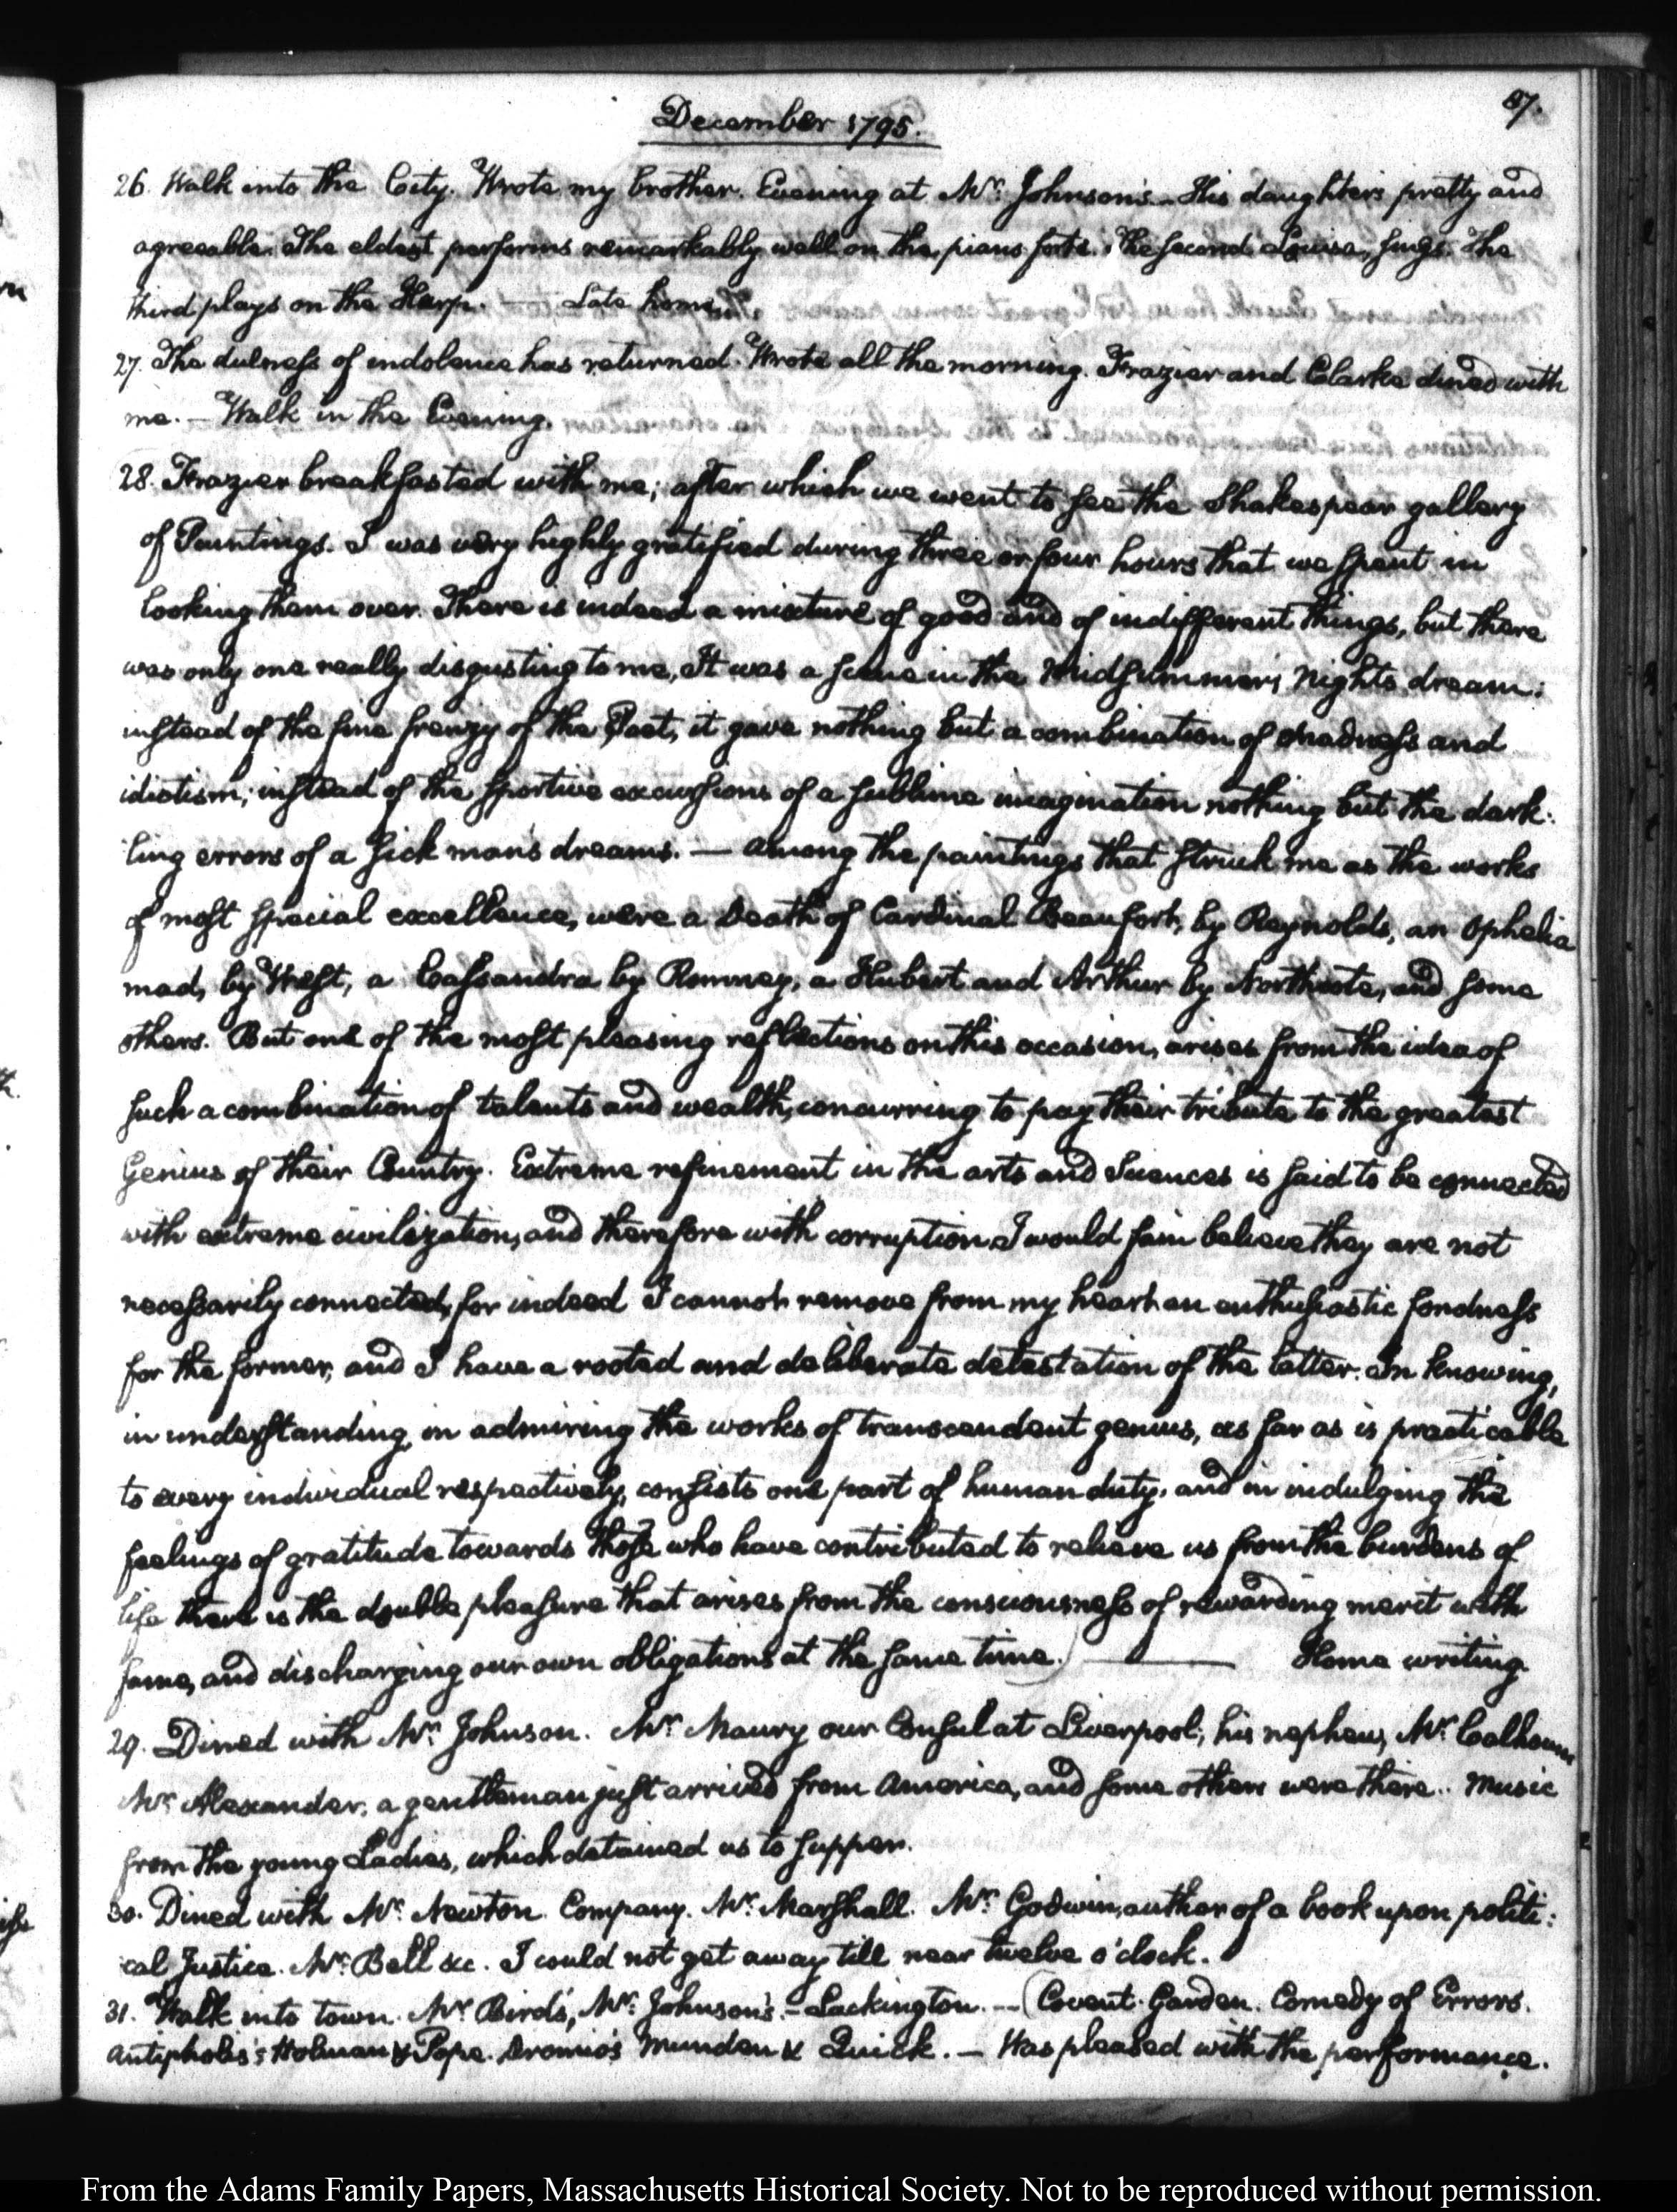 December 1795.
87.
26. Walk into the City. Wrote my brother. Evening at Mr. Johnson's — His daughters pretty and
agreeable. The eldest performs remarkably well on the piano forte. The second Louisa, sings. The
third plays on the Harp. — Late home.
27. The dulness of indolence has returned. Wrote all the morning. Frazier and Clarke dined with
me. — Walk in the Evening.
28. Frazier breakfasted with me; after which we went to see the Shakespear gallery
of Paintings. I was very highly gratified during three or four hours that we spent in
looking them over. There is indeed a mixture of good and of indifferent things, but there
was only one really disgusting to me, It was a scene in the Midsummer's Nights dream:
instead of the fine frenzy of the Poet, it gave nothing but a combination of madness and
idiotism; instead of the sportive excursions of a sublime imagination nothing but the dark:
ling errors of a sick man's dreams. — Among the paintings that struck me as the works
of most special excellence, were a Death of Cardinal Beaufort, by Reynolds, an Ophelia
mad, by West, a Cassandra by Romney, a Hubert and Arthur by Northcote, and some
others. But one of the most pleasing reflections on this occasion, arises from the idea of
such a combination of talents and wealth, concurring to pay their tribute to the greatest
Genius of their Country. Extreme refinement in the arts and Sciences is said to be connected
with extreme civilization, and therefore with corruption I would fain believe they are not
necessarily connected, for indeed I cannot remove from my heart an enthusiastic fondness
for the former, and I have a rooted and deliberate detestation of the latter. In knowing,
in understanding, in admiring the works of transcendent genius, as far as is practicable
to every individual respectively, consists one part of human duty. and in indulging the
feelings of gratitude towards those who have contributed to relieve us from the burdens of
life there is the double pleasure that arises from the consciousness of rewarding merit with
fame, and discharging our own obligations at the same time.) — Home writing.
29. Dined with Mr. Johnson. Mr. Maury our Consul at Liverpool; his nephew, Mr. Calhoun
Mr. Alexander, a gentleman just arrived from America, and some others were there.. Music
from the young Ladies, which detained us to supper.
30. Dined with Mr. Newton. Company. Mr. Marshall. Mr. Godwin, author of a book upon politi:
cal Justice. Mr. Bell &c. I could not get away till near twelve o'clock.
31. Walk into town. Mr. Bird's, Mr. Johnson's. — Lackington. — (Covent-Garden. Comedy of Errors.
Antipholis's Holman & Pope. Dromio's Munden & Quick. — Was pleased with the performance.
From the Adams Family Papers, Massachusetts Historical Society. Not to be reproduced without permission.